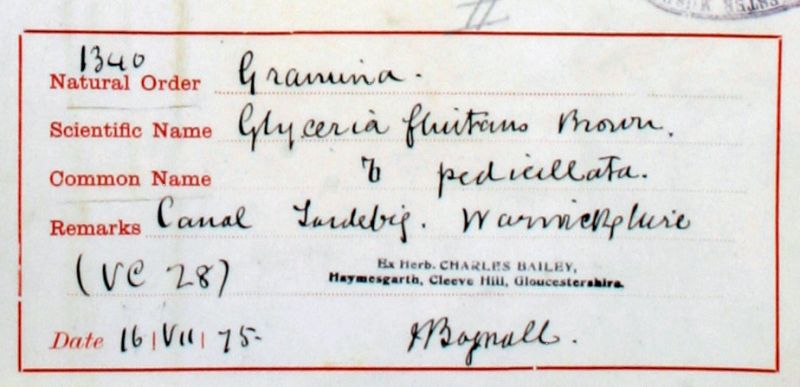 1340
Natural Order Gramina.
Scientific Name Glyceria fluitans Brown.
Common Name b pedicillata.
Remarks Canal Tardebig. Warwickshire
(VC 28)
Ex Herb. CHARLES BAILEY,
Haymesgarth, Cleeve Hill, Gloucestershire.
Date 16 | VII | 75. Bagnall.